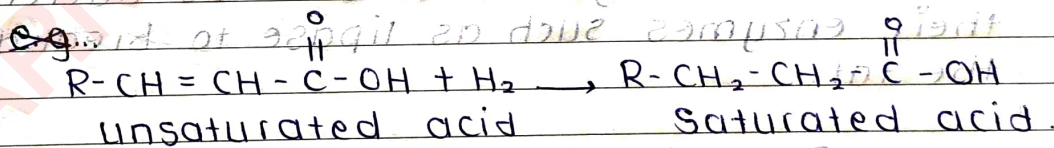 e.g.
O O
R-CH = CH - C - OH + H₂ → R-CH₂-CH₂-C-OH
unsaturated acid saturated acid.